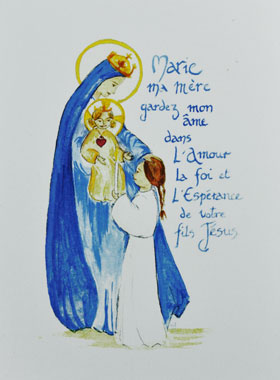 Marie
ma mère
gardez mon
âme
dans
L'Amour
la foi et
L'Espérance
de votre
fils Jésus